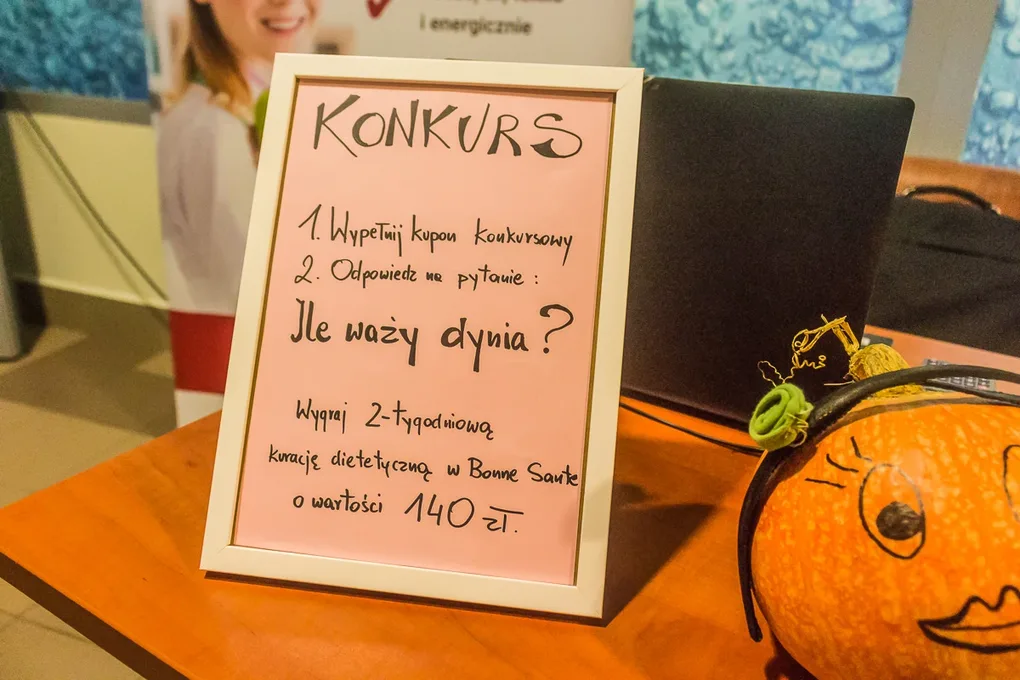 i energicznie
KONKURS
1. Wypełnij kupon konkursowy
2. Odpowiedz na pytanie:
Ile waży dynia?
Wygraj 2-tygodniową
kurację dietetyczną w Bonne Sante
o wartości 140 zł.